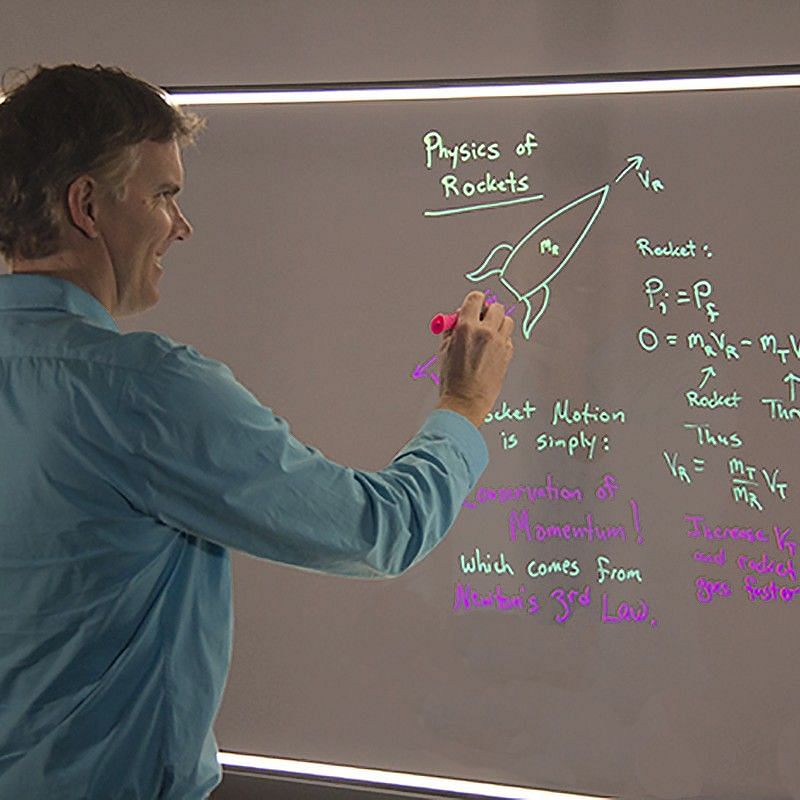 Physics of
Rockets
V_R
m_R
Rocket:
P_i = P_f
0 = m_R V_R - m_T V
Rocket
Thus
V_R = m_T/m_R V_T
Increase V_T
and rocket
goes faster
ocket Motion
is simply:
Conservation of
Momentum!
which comes from
Newton's 3rd Law.